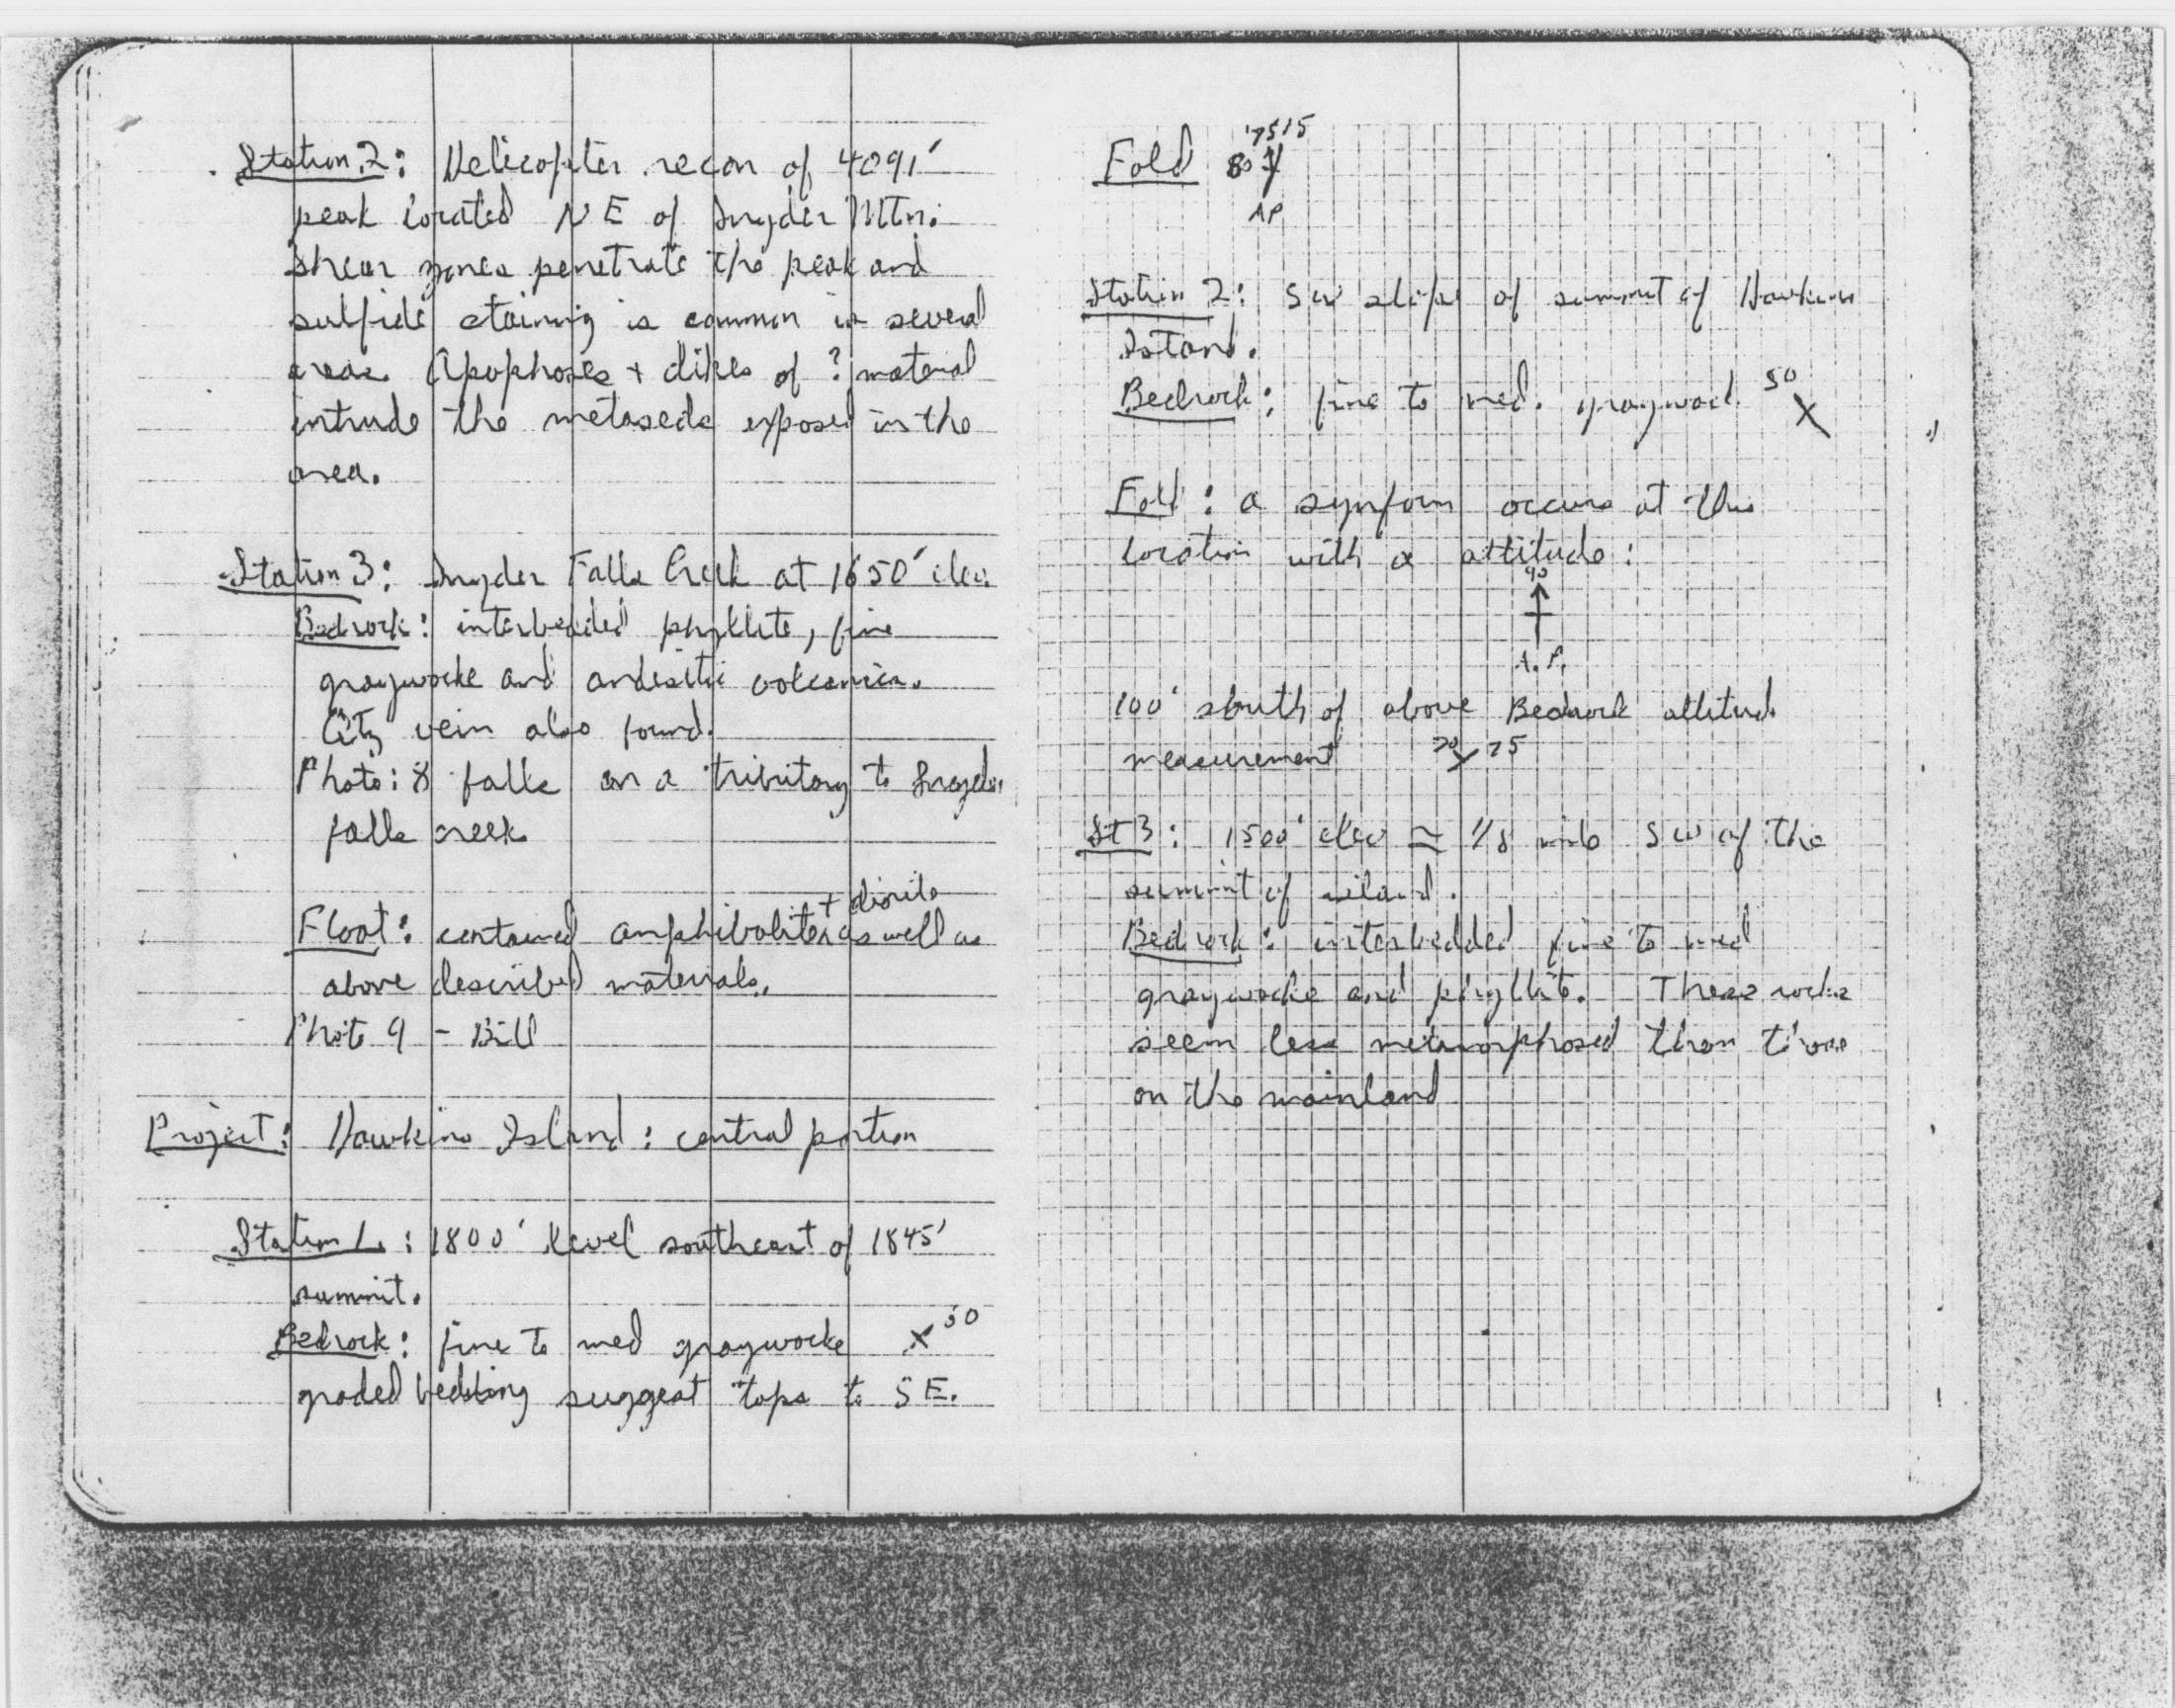 Station 2: Helicopter recon of 4091'
peak located NE of Snyder Mtn.
Shear zones penetrate the peak and
sulfide staining is common in several
areas. Apophoses + dikes of ? material
intrude the metaseds exposed in the
area.
Station 3: Snyder Falls Creek at 1650' elev.
Bedrock: interbedded phyllite, fine
graywacke and andesitic volcanics.
Qtz vein also found.
Photo: 8 falls on a tributary to Snyder
falls creek
+ diorite
Float: contained amphibolites as well as
above described materials.
Photo 9 - Bill
Project: Hawkins Island: central portion
Station 1: 1800' level southeast of 1845'
summit.
Bedrock: fine to med graywacke 50
graded bedding suggest tops to SE.
75 15
Fold 80
AP
Station 2: SW slope of summit of Hawkins
Island.
Bedrock: fine to med. graywack 50
Fold: a synform occurs at this
location with a attitude:
90
A.P.
100' south of above Bedrock attitude
measurement 70 75
St 3: 1500' elev ≃ 1/8 mile SW of the
summit of island.
Bedrock: interbedded fine to med
graywacke and phyllite. These rocks
seem less metamorphosed than those
on the mainland